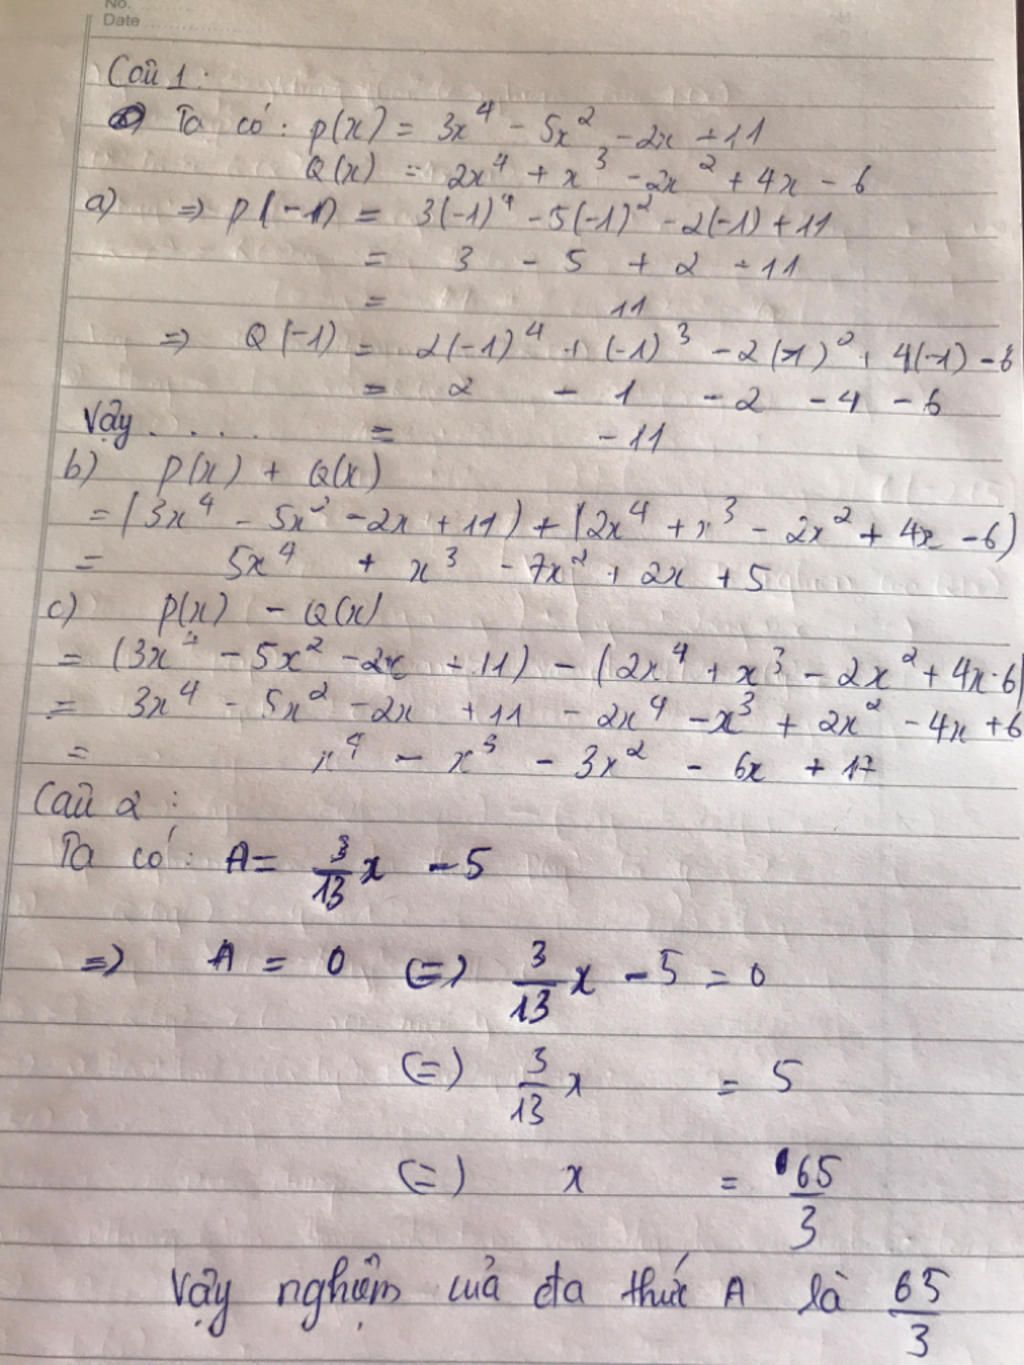 No.
Date
Câu 1:
Ta có: P(x) = 3x⁴ - 5x² - 2x + 11
Q(x) = 2x⁴ + x³ - 2x² + 4x - 6
a) => P(-1) = 3(-1)⁴ - 5(-1)² - 2(-1) + 11
= 3 - 5 + 2 + 11
= 11
=> Q(-1) = 2(-1)⁴ + (-1)³ - 2(-1)² + 4(-1) - 6
= 2 - 1 - 2 - 4 - 6
Vậy . . . . = -11
b) P(x) + Q(x)
= (3x⁴ - 5x² - 2x + 11) + (2x⁴ + x³ - 2x² + 4x - 6)
= 5x⁴ + x³ - 7x² + 2x + 5
c) P(x) - Q(x)
= (3x⁴ - 5x² - 2x + 11) - (2x⁴ + x³ - 2x² + 4x - 6)
= 3x⁴ - 5x² - 2x + 11 - 2x⁴ - x³ + 2x² - 4x + 6
= x⁴ - x³ - 3x² - 6x + 17
Câu 2:
Ta có: A = 3/13 x - 5
=> A = 0 (=) 3/13 x - 5 = 0
(=) 3/13 x = 5
(=) x = 65/3
Vậy nghiệm của đa thức A là 65/3